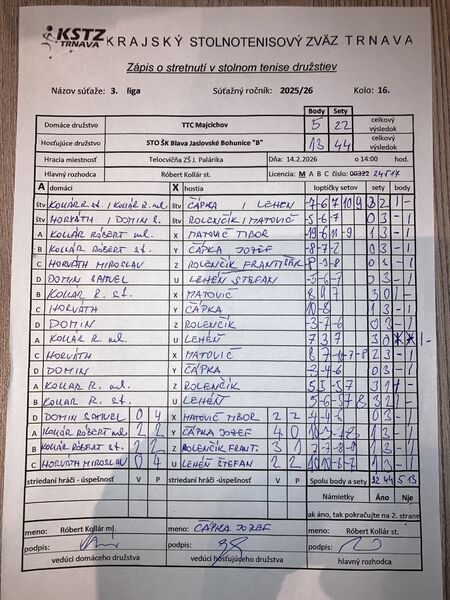 KSTZ
TRNAVA
KRAJSKÝ STOLNOTENISOVÝ ZVÄZ TRNAVA
Zápis o stretnutí v stolnom tenise družstiev
Názov súťaže: 3. liga Súťažný ročník: 2025/26 Kolo: 16.
Body Sety
Domáce družstvo TTC Majcichov 5 22 celkový výsledok
Hosťujúce družstvo STO ŠK Blava Jaslovské Bohunice "B" 13 44 celkový výsledok
Hracia miestnosť Telocvičňa ZŠ J. Palárika Dňa: 14.2.2026 o 14:00 hod.
Hlavný rozhodca Róbert Kollár st. Licencia: M A B C číslo: 00322 24517
A domáci X hostia loptičky setov sety body
štv KOLLÁR st. / KOLLÁR R. ml. štv ČÁPKA / LEHEŇ -7 -6 7 10 9 3 2 1 -
štv HORVÁTH / DOMIN R. štv ROLENČÍK / MATOVIČ -5 -6 -7 0 3 - 1
A KOLLÁR RÓBERT ml. X MATOVIČ TIBOR 1 3 - 1
B KOLLÁR RÓBERT st. Y ČÁPKA JOZEF -8 -7 -2 0 3 - 1
C HORVÁTH MIROSLAV Z ROLENČÍK FRANTIŠEK 0 3 - 1
D DOMIN SAMUEL U LEHEŇ ŠTEFAN -5 -6 -7 0 3 - 1
B KOLLÁR R. st. X MATOVIČ 8 9 7 3 0 1 -
C HORVÁTH Y ČÁPKA 1 3 - 1
D DOMIN Z ROLENČÍK -3 -7 -6 0 3 - 1
A KOLLÁR R. ml. U LEHEŇ 7 3 7 3 0 1 -
C HORVÁTH X MATOVIČ 8 7 -10 -7 -8 2 3 - 1
D DOMIN Y ČÁPKA -3 -4 -6 0 3 - 1
A KOLLÁR R. ml. Z ROLENČÍK 5 5 -5 7 3 1 1 -
B KOLLÁR R. st. U LEHEŇ 5 -6 -5 7 8 3 2 1 -
D DOMIN SAMUEL 0 4 X MATOVIČ TIBOR 2 2 -4 -4 -6 0 3 - 1
A KOLLÁR RÓBERT ml. 2 2 Y ČÁPKA JOZEF 4 0 1 3 - 1
B KOLLÁR RÓBERT st. 2 2 Z ROLENČÍK FRANT. 3 1 1 3 - 1
C HORVÁTH MIROSLAV 0 4 U LEHEŇ ŠTEFAN 2 2 1 3 - 1
striedaní hráči - úspešnosť V P striedaní hráči - úspešnosť V P Spolu body a sety 22 44 5 13
Námietky Áno Nie
ak áno, tak pokračujte na 2. strane
meno: Róbert Kollár ml. meno: ČÁPKA JOZEF meno: Róbert Kollár st.
podpis: podpis: podpis:
vedúci domáceho družstva vedúci hosťujúceho družstva hlavný rozhodca